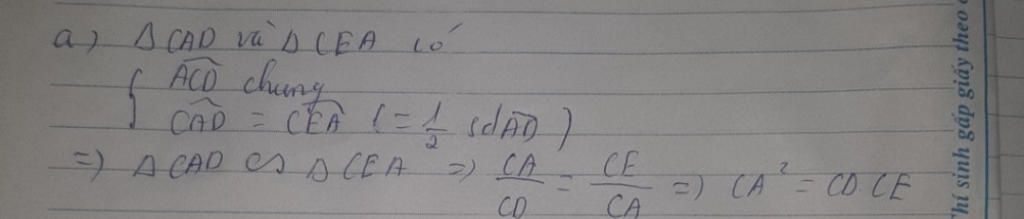 a) Δ CAD và Δ CEA có
{ \widehat{ACD} chung
\widehat{CAD} = \widehat{CEA} (= \frac{1}{2} sđ \overset{\frown}{AD})
=> Δ CAD ∽ Δ CEA => \frac{CA}{CD} = \frac{CE}{CA} => CA² = CD CE
hí sinh gấp giấy theo